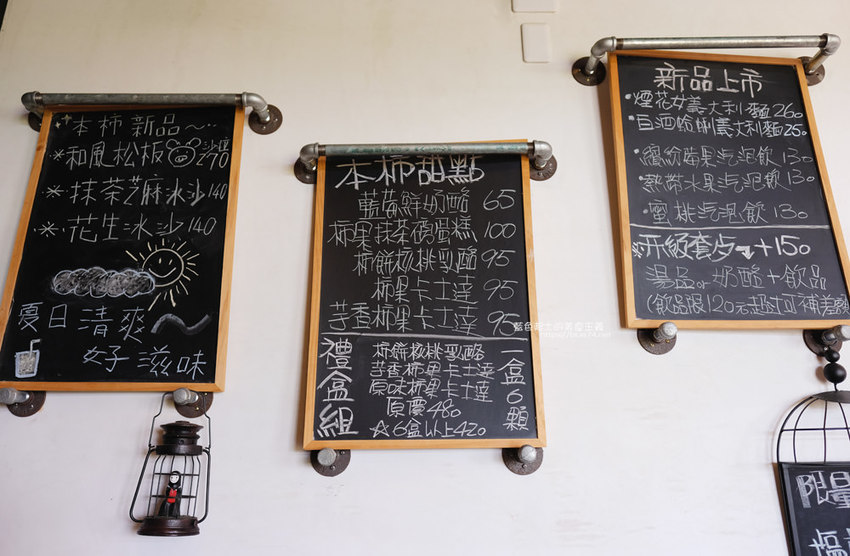 本柿新品～
※和風松板 沙區 270
※抹茶芝麻冰沙140
※花生冰沙140
夏日清爽～
好滋味
本柿甜點
藍莓鮮奶酪 65
柿果抹茶磅蛋糕 100
柿餅核桃乳酪 95
柿果卡士達 95
芋香柿果卡士達 95
禮盒組
柿餅核桃乳酪
芋香柿果卡士達
原味柿果卡士達
原價480
☆6盒以上420
一盒6顆
新品上市
•煙花女義大利麵260
•白酒蛤蜊義大利麵250
•繽紛莓果汽泡飲130
•熱帶水果汽泡飲130
•蜜桃汽泡飲130
※升級套餐→+150
湯品or奶酪+飲品
(飲品限120元超过可補差額
限量